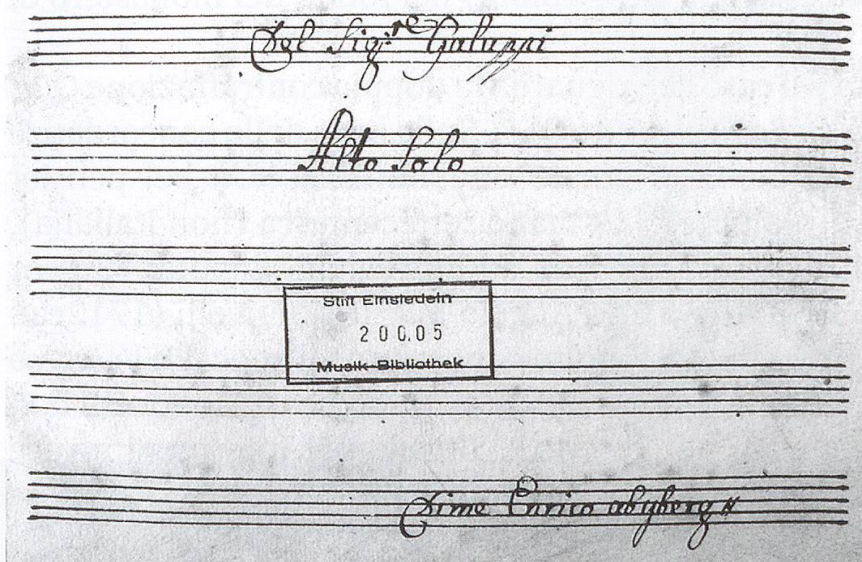 Del Sig:re Galuppi
Alto Solo
Stift Einsiedeln
200.05
Musik-Bibliothek
Di me Enrico abyberg